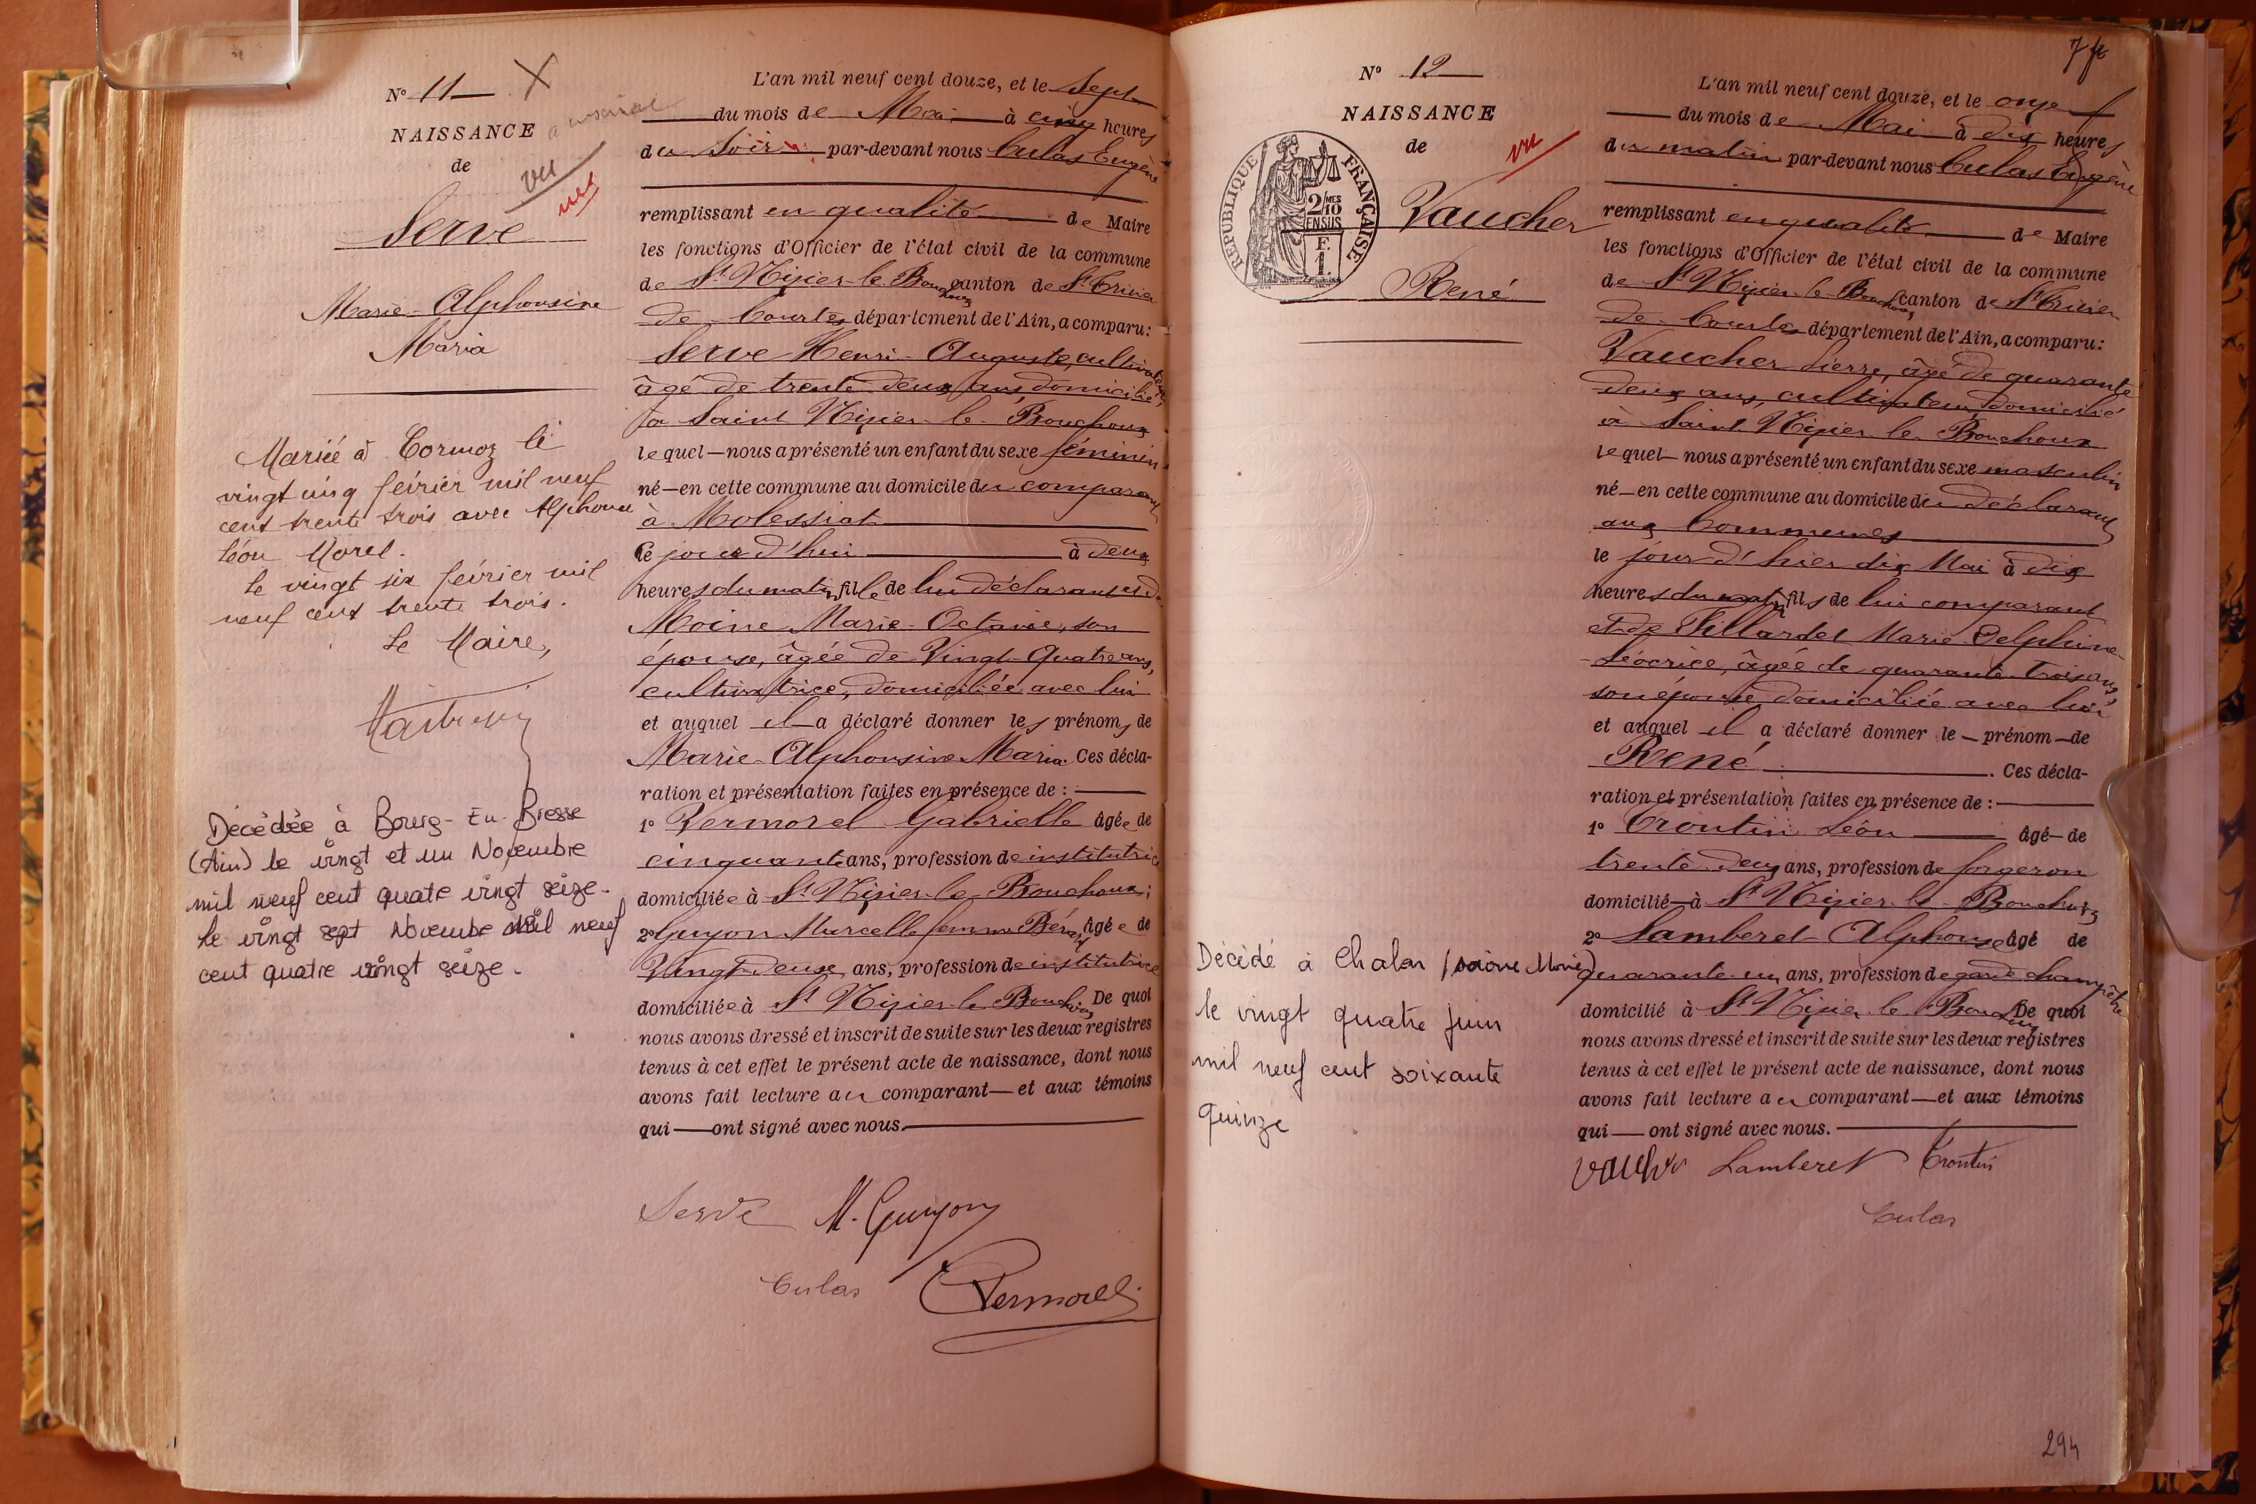 N° 11
NAISSANCE
de
vu
vu
Serve
Marie-Alphonsine
Maria
Mariée à Cormoz le
vingt cinq février mil neuf
cent trente trois avec Alphonse
Léon Morel.
Le vingt six février mil
neuf cent trente trois.
Le Maire,
Décédée à Bourg-En-Bresse
(Ain) le vingt et un Novembre
mil neuf cent quatre vingt seize.
Le vingt sept Novembre mil neuf
cent quatre vingt seize.
L'an mil neuf cent douze, et le Sept
du mois de Mai à cinq heures
du Soir par-devant nous Culas Eugène
remplissant en qualité de Maire
les fonctions d'Officier de l'état civil de la commune
de St Nizier-le-Bouchoux canton de St Trivier
de Courtes département de l'Ain, a comparu:
Serve Henri-Auguste, cultivateur,
âgé de trente deux ans, domicilié
à Saint Nizier-le-Bouchoux
lequel nous a présenté un enfant du sexe féminin
né en cette commune au domicile du comparant
à Molessiat
Le jour d'hui à deux
heures du matin, fille de lui déclarant et de
Moine Marie-Octavie, son
épouse, âgée de Vingt-Quatre ans,
cultivatrice, domiciliée avec lui
et auquel il a déclaré donner les prénoms de
Marie-Alphonsine Maria. Ces décla-
ration et présentation faites en présence de :
1° Vermorel Gabrielle âgée de
cinquante ans, profession de institutrice
domiciliée à St Nizier-le-Bouchoux;
2° Guyon Marcelle femme âgée de
Vingt-deux ans, profession de institutrice
domiciliée à St Nizier-le-Bouchoux De quoi
nous avons dressé et inscrit de suite sur les deux registres
tenus à cet effet le présent acte de naissance, dont nous
avons fait lecture au comparant et aux témoins
qui ont signé avec nous.
Serve M. Guyon
Culas Vermorel
7 ft
N° 12
NAISSANCE
de
vu
REPUBLIQUE FRANÇAISE
2/10 MES
EN SUS
F.
1.
Vaucher
René
Décédé à Chalon (Saône Marne)
le vingt quatre juin
mil neuf cent soixante
quinze
L'an mil neuf cent douze, et le onze
du mois de Mai à dix heures
du matin par-devant nous Culas Eugène
remplissant en qualité de Maire
les fonctions d'Officier de l'état civil de la commune
de St Nizier-le-Bouchoux canton de St Trivier
de Courtes département de l'Ain, a comparu:
Vaucher Pierre, âgé de quarante
deux ans, cultivateur, domicilié
à Saint Nizier-le-Bouchoux
lequel nous a présenté un enfant du sexe masculin
né en cette commune au domicile du déclarant
aux Communes
le jour d'hier dix Mai à dix
heures du matin, fils de lui comparant
et de Tillardet Marie Delphine-
Léocrice, âgée de quarante-trois ans,
son épouse domiciliée avec lui
et auquel il a déclaré donner le prénom de
René. Ces décla-
ration et présentation faites en présence de :
1° Trontin Léon âgé de
trente-deux ans, profession de forgeron
domicilié à St Nizier-le-Bouchoux
2° Lamberet Alphonse âgé de
quarante un ans, profession de garde champêtre
domicilié à St Nizier-le-Bouchoux De quoi
nous avons dressé et inscrit de suite sur les deux registres
tenus à cet effet le présent acte de naissance, dont nous
avons fait lecture au comparant et aux témoins
qui ont signé avec nous.
Vaucher Lamberet Trontin
Culas
294